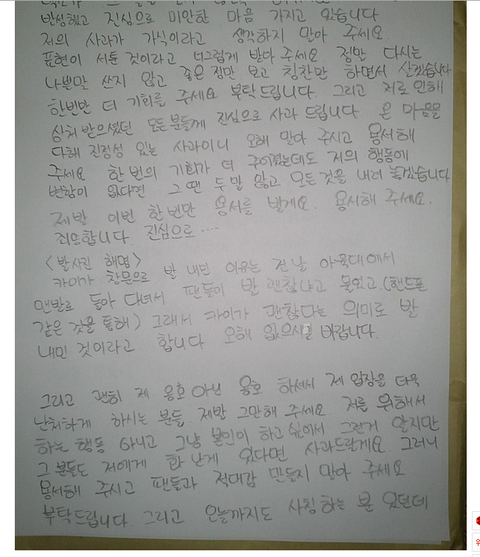 반성했고 진심으로 미안한 마음 가지고 있습니다
저의 사과가 가식이라고 생각하지 말아 주세요
표현이 서툰 것이라고 너그럽게 받아 주세요 정말 다시는
나쁜말 쓰지 않고 좋은 점만 보고 칭찬만 하면서 살겠습니다
한번만 더 기회를 주세요 부탁드립니다 그리고 저로 인해
상처 받으셨던 모든 분들께 진심으로 사과 드립니다 온 마음을
다해 진정성 있는 사과이니 오해 말아 주시고 용서해
주세요 한 번의 기회가 더 주어졌는데도 저의 행동에
변함이 없다면 그땐 두말 않고 모든것을 내려 놓겠습니다
제발 이번 한번만 용서를 빌게요. 용서해 주세요.
죄송합니다 진심으로....
<발사진 해명>
카이가 창문으로 발 내민 이유는 전날 야외무대에서
맨발로 돌아 다녀서 팬들이 발 괜찮냐고 물었고 (핸드폰
같은 것을 통해) 그래서 카이가 괜찮다는 의미로 발
내민 것이라고 합니다 오해 없으시길 바랍니다.
그리고 괜히 제 옹호 아닌 옹호 하셔서 제 입장을 더욱
난처하게 하시는 분들 제발 그만해 주세요 저를 위해서
하는 행동 아니고 그냥 본인이 하고 싶어서 그런거 알지만
그 분들도 저에게 화난게 있다면 사과드릴게요 그러니
용서해 주시고 팬들과 적대감 만들지 말아 주세요
부탁드립니다 그리고 오늘까지도 사칭하는 분 있던데